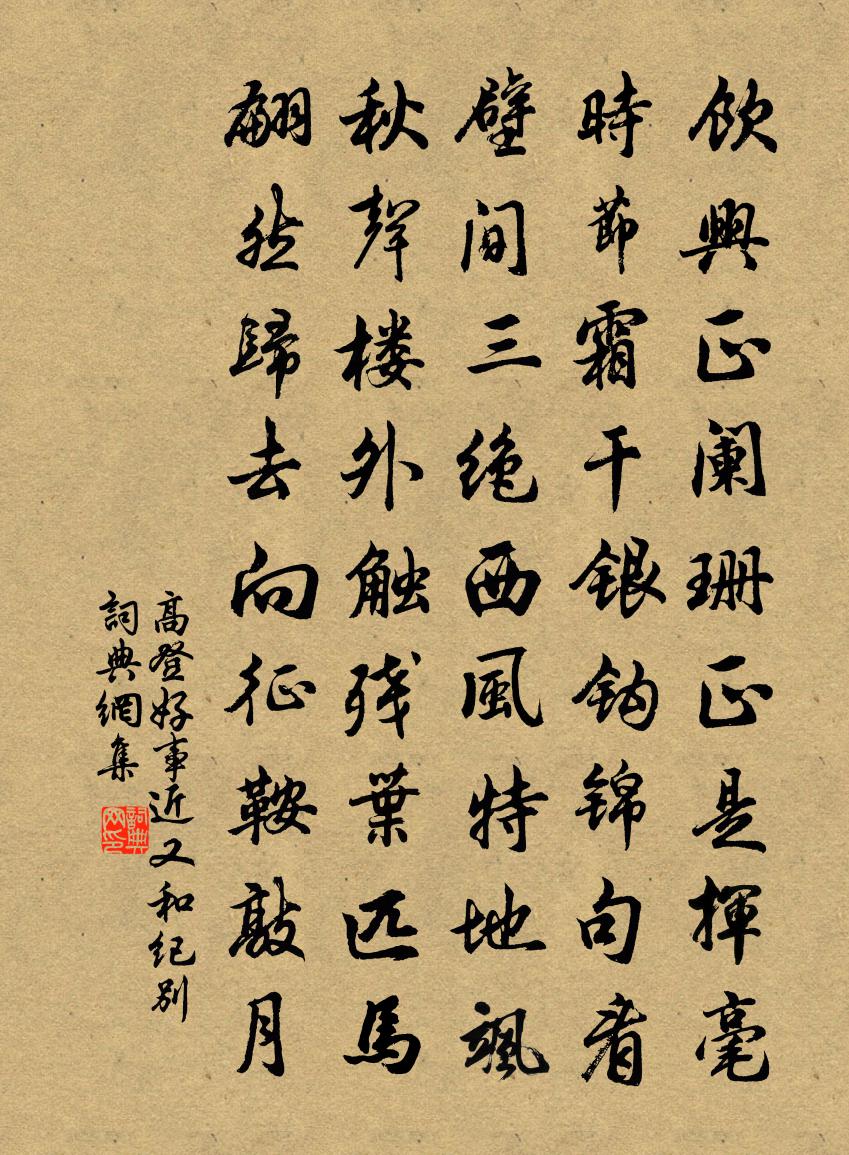 飲興正阑珊正是揮毫
時節霜干银钩锦句看
壁间三绝西風特地飒
秋聲楼外触残葉匹馬
翩然歸去向征鞍敲月
高登好事近又和纪别
詞典網集
詞典网印